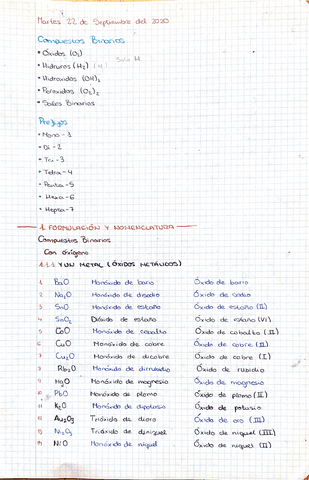 Martes 22 de Septiembre del 2020
Compuestos Binarios
• Óxidos (O₂)
• Hidruros (H₂) (H)
• Hidróxidos (OH)₂
• Peróxidos (O₂)₂
• Sales Binarias
Prefijos
• Mono - 1
• Di - 2
• Tri - 3
• Tetra - 4
• Penta - 5
• Hexa - 6
• Hepta - 7
1. FORMULACIÓN Y NOMENCLATURA
Compuestos Binarios
Con oxígeno
1.1.1 Y UN METAL (ÓXIDOS METÁLICOS)
1 BaO Monóxido de bario Óxido de bario
2 Na₂O Monóxido de disodio Óxido de sodio
3 SnO Monóxido de estaño Óxido de estaño (II)
4 SnO₂ Dióxido de estaño Óxido de estaño (VI)
5 CoO Monóxido de cobalto Óxido de cobalto (II)
6 CuO Monóxido de cobre Óxido de cobre (II)
7 Cu₂O Monóxido de dicobre Óxido de cobre (I)
Rb₂O Monóxido de dirrubidio Óxido de rubidio
MgO Monóxido de magnesio Óxido de magnesio
PbO Monóxido de plomo Óxido de plomo (II)
K₂O Monóxido de dipotasio Óxido de potasio
Au₂O₃ Trióxido de dioro Óxido de oro (III)
Ni₂O₃ Trióxido de diníquel Óxido de níquel (III)
NiO Monóxido de níquel Óxido de níquel (II)